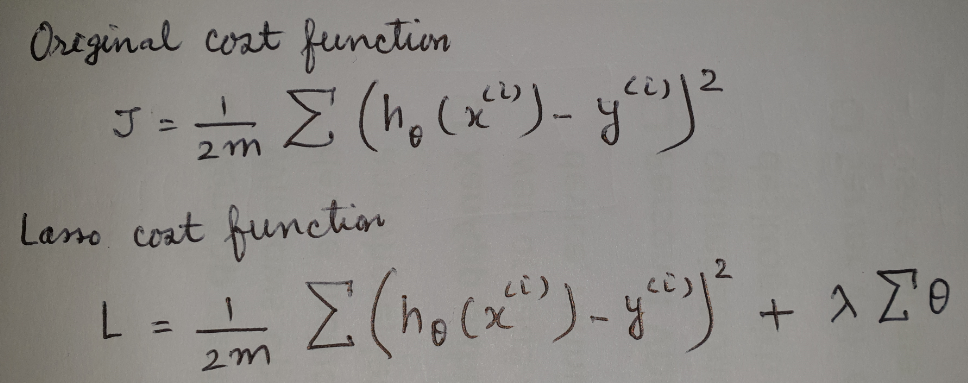 Original cost function
J = 1/2m Σ (h_θ(x^(i)) - y^(i))^2
Lasso cost function
L = 1/2m Σ (h_θ(x^(i)) - y^(i))^2 + λ Σ θ